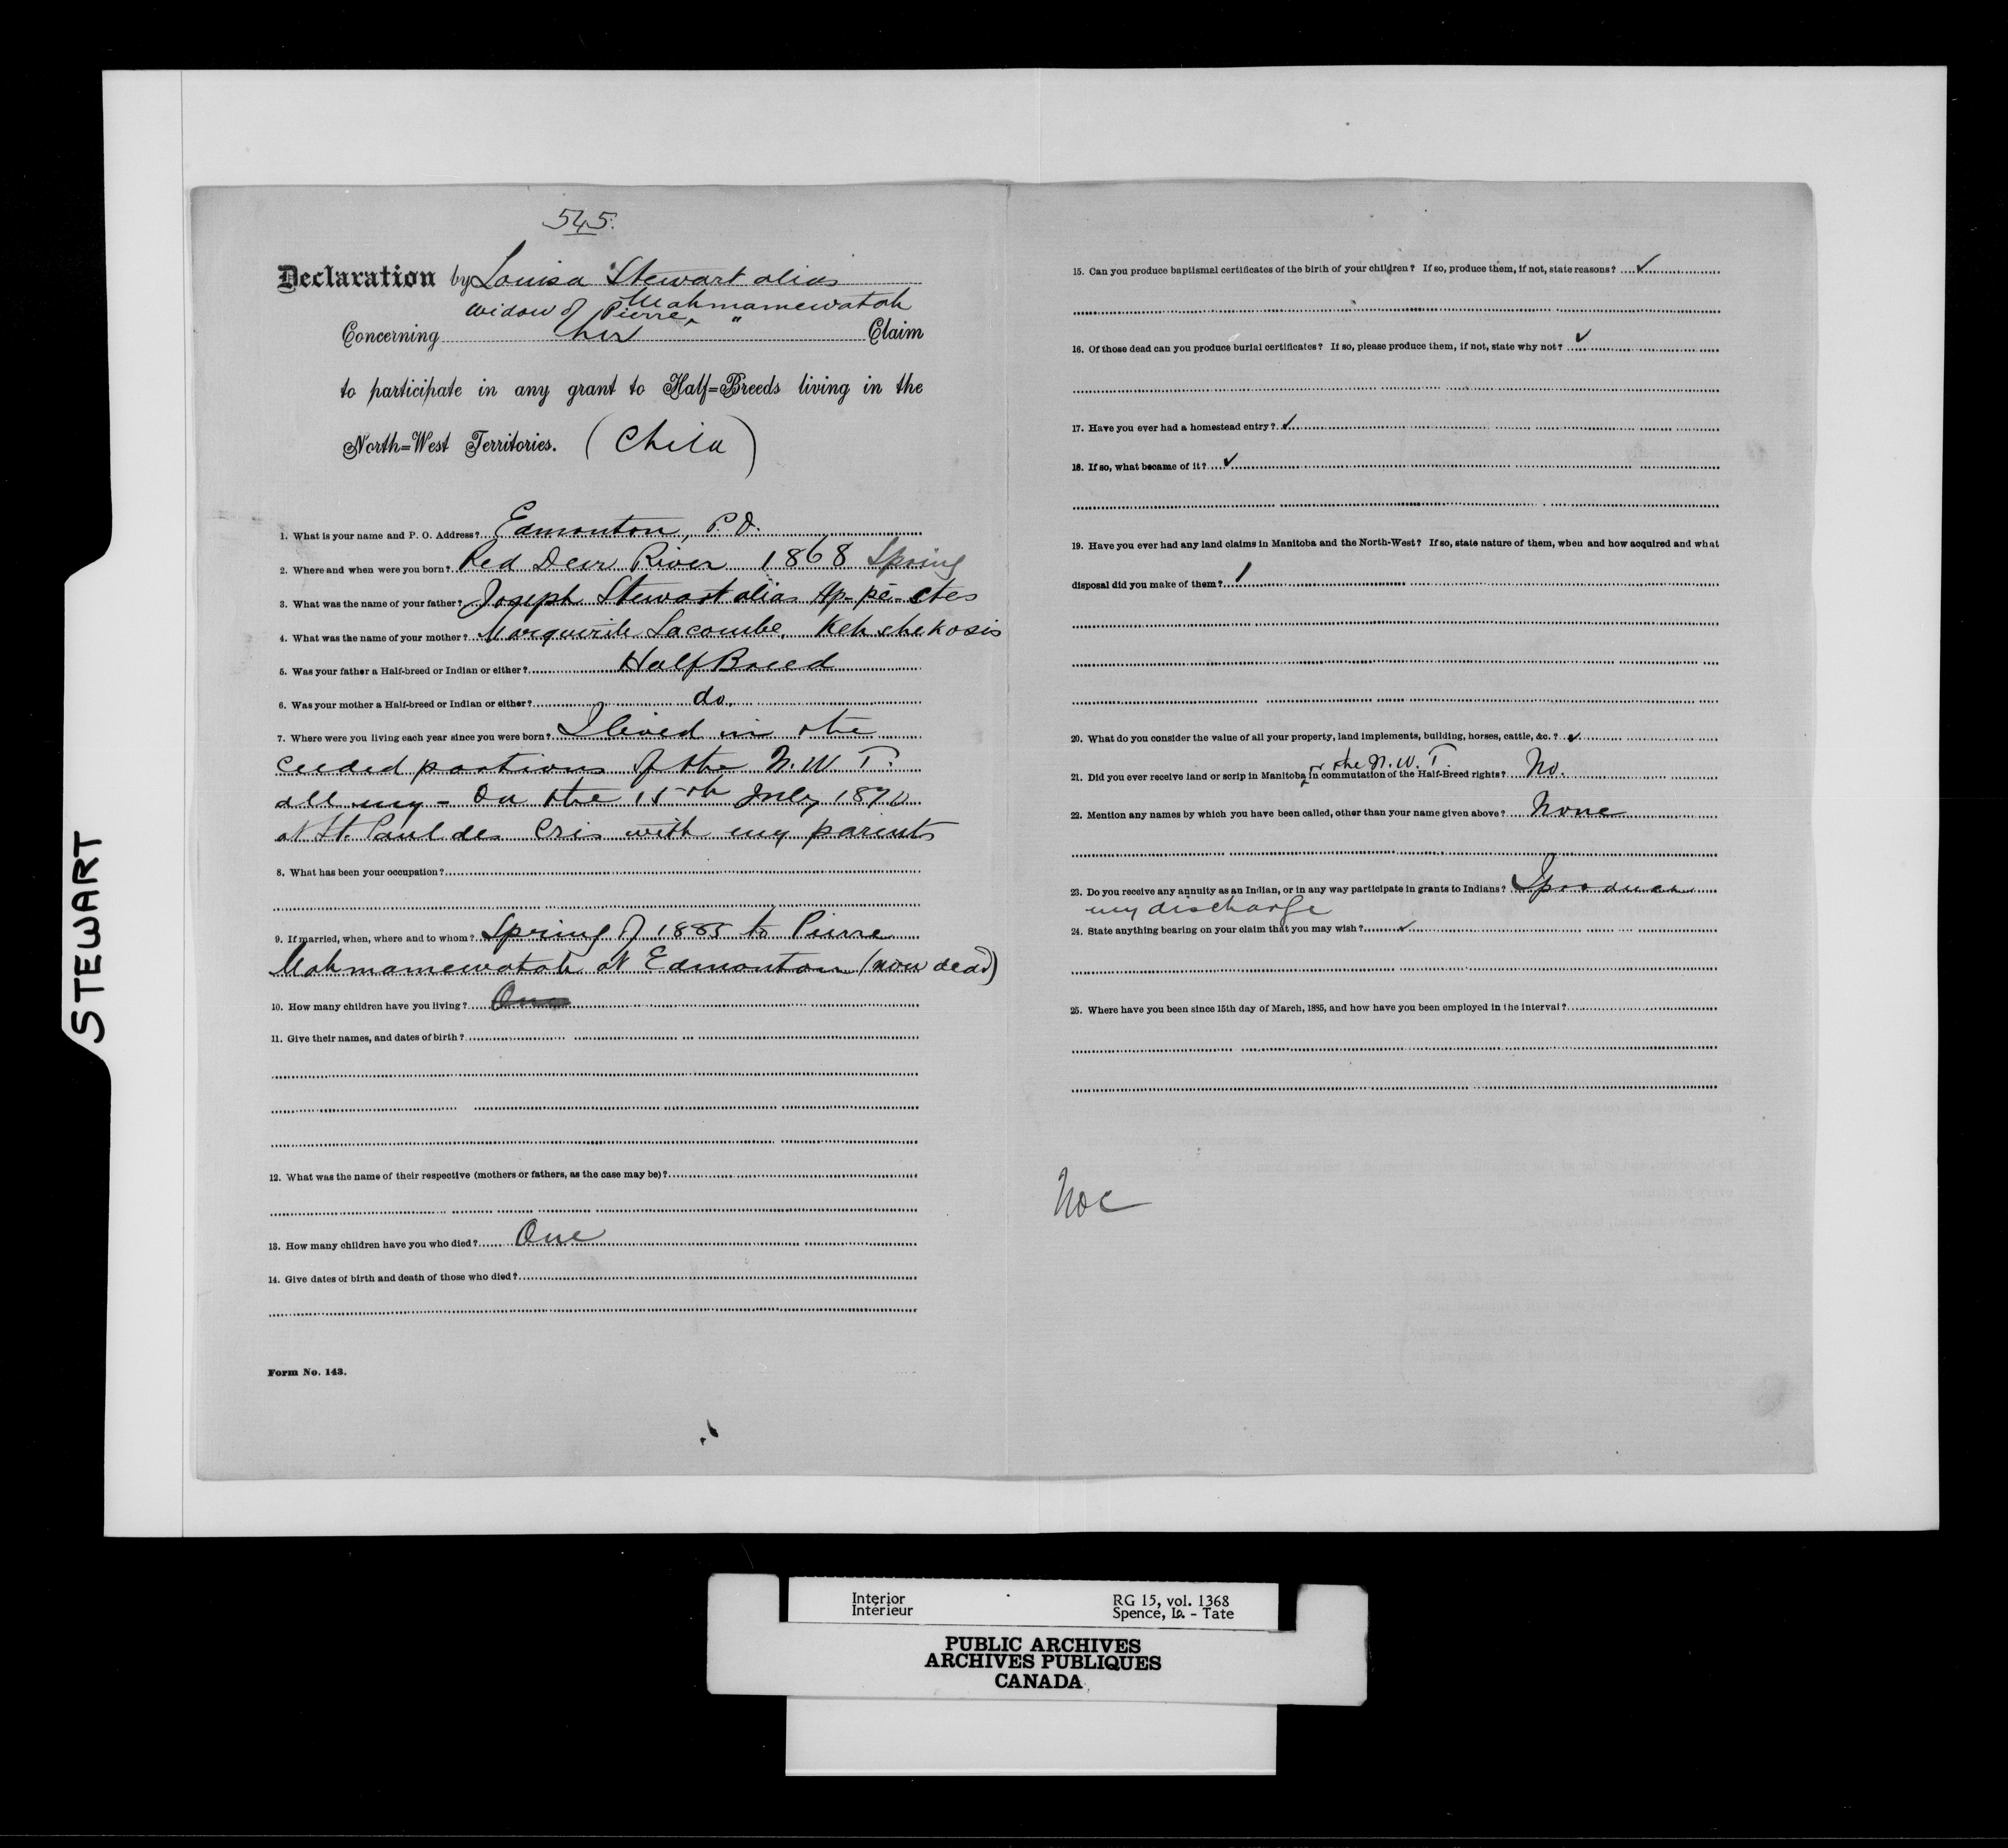 STEWART
545.
Declaration by Louisa Stewart alias
Mahmamewatah
widow of Pierre "
Concerning her Claim
to participate in any grant to Half=Breeds living in the
North=West Territories. (Child)
1. What is your name and P. O. Address? Edmonton, P.O.
2. Where and when were you born? Red Deer River 1868 Spring
3. What was the name of your father? Joseph Stewart alias Ap-pe-ctes
4. What was the name of your mother? Marguerite Lacombe, Keh che kosis
5. Was your father a Half-breed or Indian or either? Half Breed
6. Was your mother a Half-breed or Indian or either? do.
7. Where were you living each year since you were born? I lived in the
ceeded portions of the N. W. T.
all my - On the 15th July 1870
at St. Paul des Cris with my parents
8. What has been your occupation?
9. If married, when, where and to whom? Spring of 1885 to Pierre
Mahmamewatah at Edmonton (now dead)
10. How many children have you living? One
11. Give their names, and dates of birth?
12. What was the name of their respective (mothers or fathers, as the case may be)?
13. How many children have you who died? One
14. Give dates of birth and death of those who died?
Form No. 143.
15. Can you produce baptismal certificates of the birth of your children? If so, produce them, if not, state reasons? ✓
16. Of those dead can you produce burial certificates? If so, please produce them, if not, state why not? ✓
17. Have you ever had a homestead entry? ✓
18. If so, what became of it? ✓
19. Have you ever had any land claims in Manitoba and the North-West? If so, state nature of them, when and how acquired and what
disposal did you make of them?
20. What do you consider the value of all your property, land implements, building, horses, cattle, &c.? ✓
or the N. W. T.
21. Did you ever receive land or scrip in Manitoba in commutation of the Half-Breed rights? No.
22. Mention any names by which you have been called, other than your name given above? None
23. Do you receive any annuity as an Indian, or in any way participate in grants to Indians? I produce
my discharge
24. State anything bearing on your claim that you may wish? ✓
25. Where have you been since 15th day of March, 1885, and how have you been employed in the interval?
Interior RG 15, vol. 1368
Intérieur Spence, Is. - Tate
PUBLIC ARCHIVES
ARCHIVES PUBLIQUES
CANADA